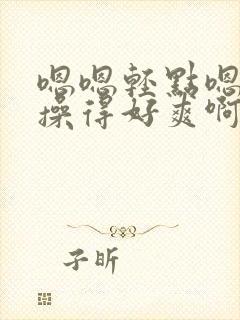 嗯嗯輕點嗯
操得好爽啊
子昕